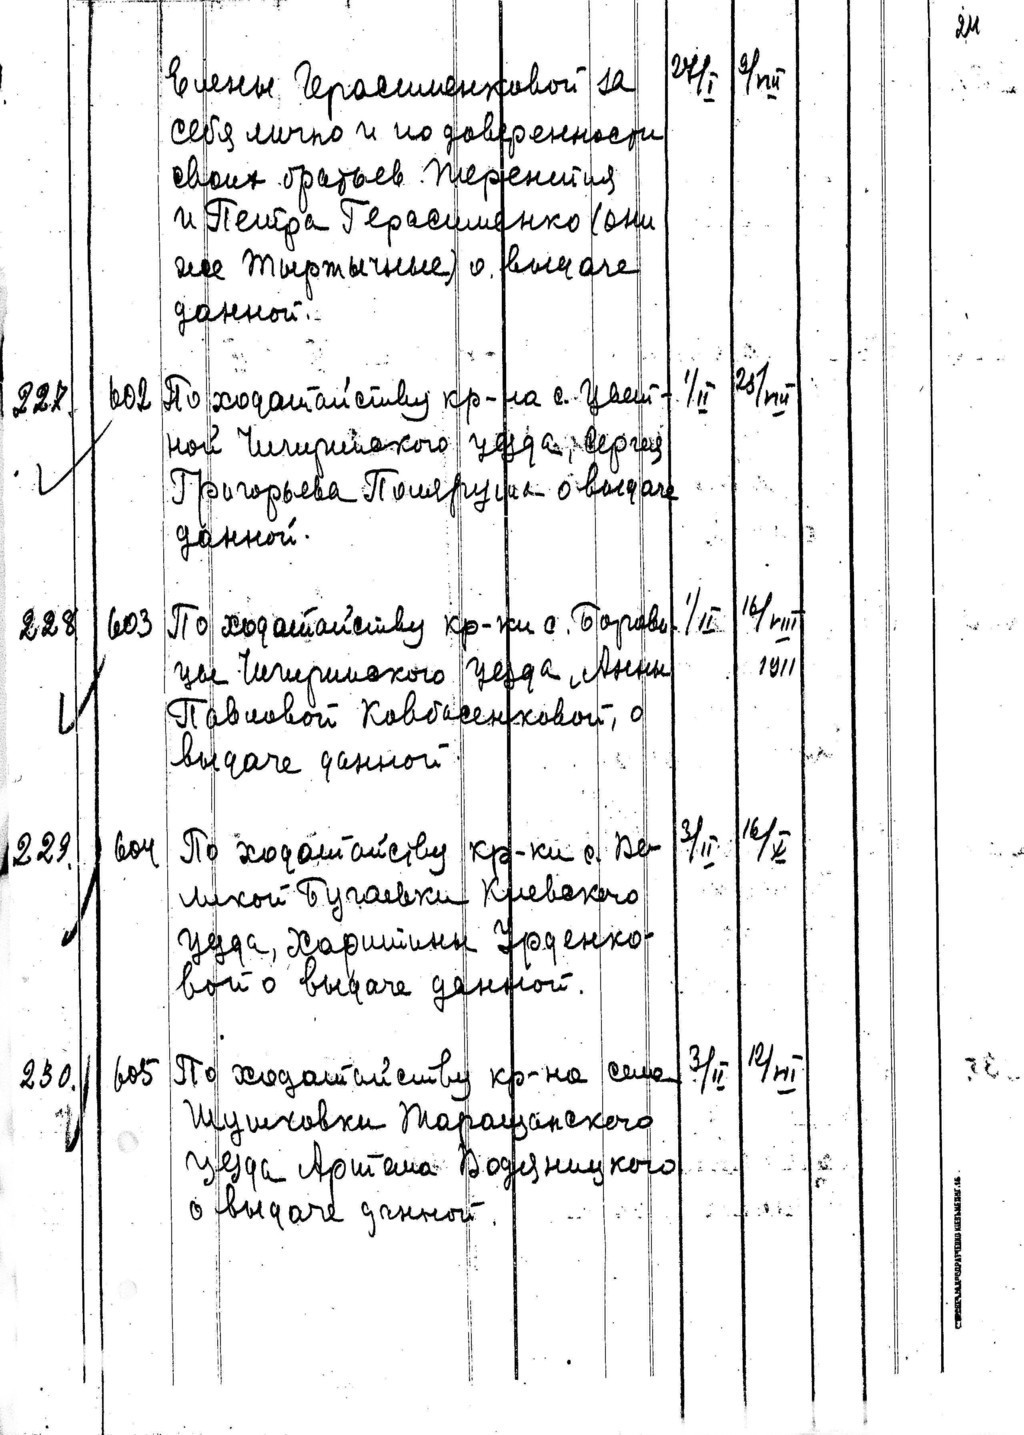 24
Елены Герасименковой за 27/I 9/VIII
себя лично и по доверенности
своих братьев Терентия
и Петра Герасименко (они
же Тыртычные) о выдаче
данной.
227. 602 По ходатайству кр-на с. Цвет- 1/II 25/VIII
ной Чигиринского уезда, Сергея
Григорьева о выдаче
данной.
228 603 По ходатайству кр-ки с. Борови- 1/II 16/VIII
цы Чигиринского уезда, Анны 1911
Павловой Ковбасенковой, о
выдаче данной
229. 604 По ходатайству кр-ки с. Ве- 3/II 16/X
ликой Бугаевки Киевского
уезда, Харитины Урденко-
вой о выдаче данной.
230. 605 По ходатайству кр-на села 3/II 12/VII
Шушковки Таращанского
уезда Артема Водяницкого
о выдаче данной.